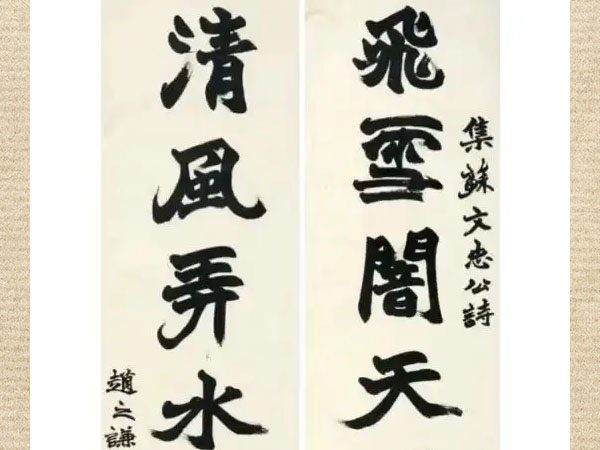 飛雪闇天
集蘇文忠公詩
清風弄水
趙之謙